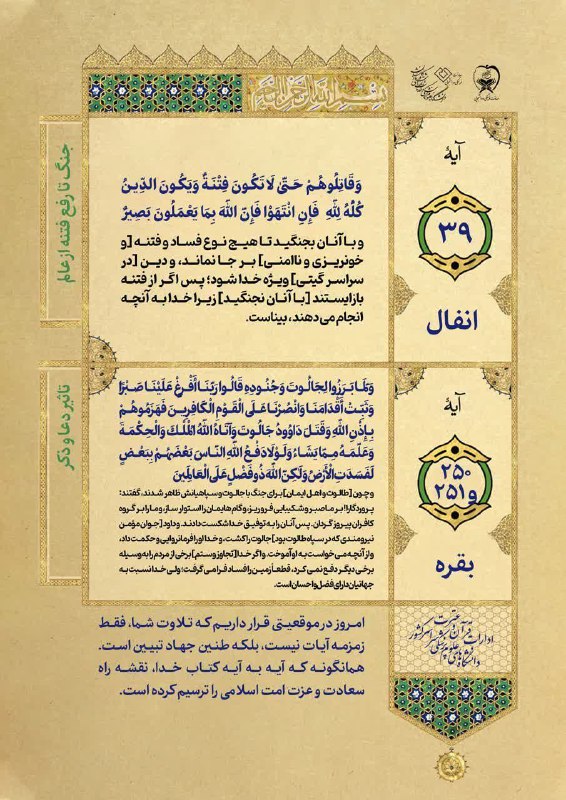 بسم الله الرحمن الرحیم
آیهٔ
۳۹
انفال
جنگ تا رفع فتنه از عالم
وَقَاتِلُوهُمْ حَتَّىٰ لَا تَكُونَ فِتْنَةٌ وَيَكُونَ الدِّينُ
كُلُّهُ لِلَّهِ فَإِنِ انْتَهَوْا فَإِنَّ اللَّهَ بِمَا يَعْمَلُونَ بَصِيرٌ
و با آنان بجنگید تا هیچ نوع فساد و فتنه [و
خونریزی و ناامنی] بر جا نماند، و دین [در
سراسر گیتی] ویژه خدا شود؛ پس اگر از فتنه
بازایستند [با آنان نجنگید] زیرا خدا به آنچه
انجام می‌دهند، بیناست.
آیهٔ
۲۵۰
و۲۵۱
بقره
تاثیر دعا و ذکر
وَلَمَّا بَرَزُوا لِجَالُوتَ وَجُنُودِهِ قَالُوا رَبَّنَا أَفْرِغْ عَلَيْنَا صَبْرًا
وَثَبِّتْ أَقْدَامَنَا وَانْصُرْنَا عَلَى الْقَوْمِ الْكَافِرِينَ فَهَزَمُوهُمْ
بِإِذْنِ اللَّهِ وَقَتَلَ دَاوُودُ جَالُوتَ وَآتَاهُ اللَّهُ الْمُلْكَ وَالْحِكْمَةَ
وَعَلَّمَهُ مِمَّا يَشَاءُ وَلَوْلَا دَفْعُ اللَّهِ النَّاسَ بَعْضَهُمْ بِبَعْضٍ
لَفَسَدَتِ الْأَرْضُ وَلَٰكِنَّ اللَّهَ ذُو فَضْلٍ عَلَى الْعَالَمِينَ
و چون [طالوت و اهل ایمان] برای جنگ با جالوت و سپاهیانش ظاهر شدند، گفتند:
پروردگارا! بر ما صبر و شکیبایی فرو ریز، و گام هایمان را استوار ساز، و ما را بر گروه
کافران پیروز گردان. پس آنان را به توفیق خدا شکست دادند. و داود [جوان مؤمن
نیرومندی که در سپاه طالوت بود] جالوت را کشت، و خدا او را فرمانروایی و حکمت داد،
و از آنچه می خواست به او آموخت. و اگر خدا [تجاوز و ستم] برخی از مردم را به وسیله
برخی دیگر دفع نمی کرد، قطعاً زمین را فساد فرا می گرفت؛ ولی خدا نسبت به
جهانیان دارای فضل و احسان است.
امروز در موقعیتی قرار داریم که تلاوت شما، فقط
زمزمه آیات نیست، بلکه طنین جهاد تبیین است.
همانگونه که آیه به آیه کتاب خدا، نقشه راه
سعادت و عزت امت اسلامی را ترسیم کرده است.
ادارات قرآن و عترت
دانشگاه های علوم پزشکی سراسر کشور